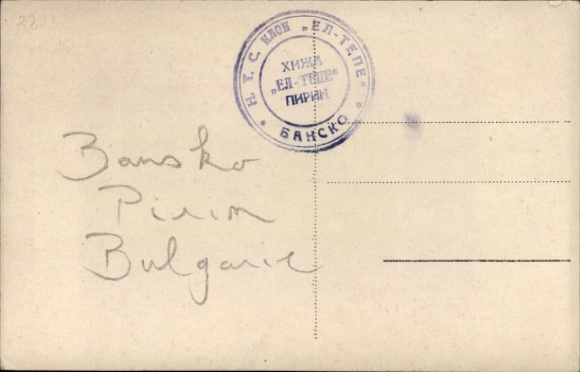 222
Ю. Т. С. КЛОН „ЕЛ-ТЕПЕ“
ХИЖА
„ЕЛ-ТЕПЕ“
ПИРИН
БАНСКО
Bansko
Pirin
Bulgarie